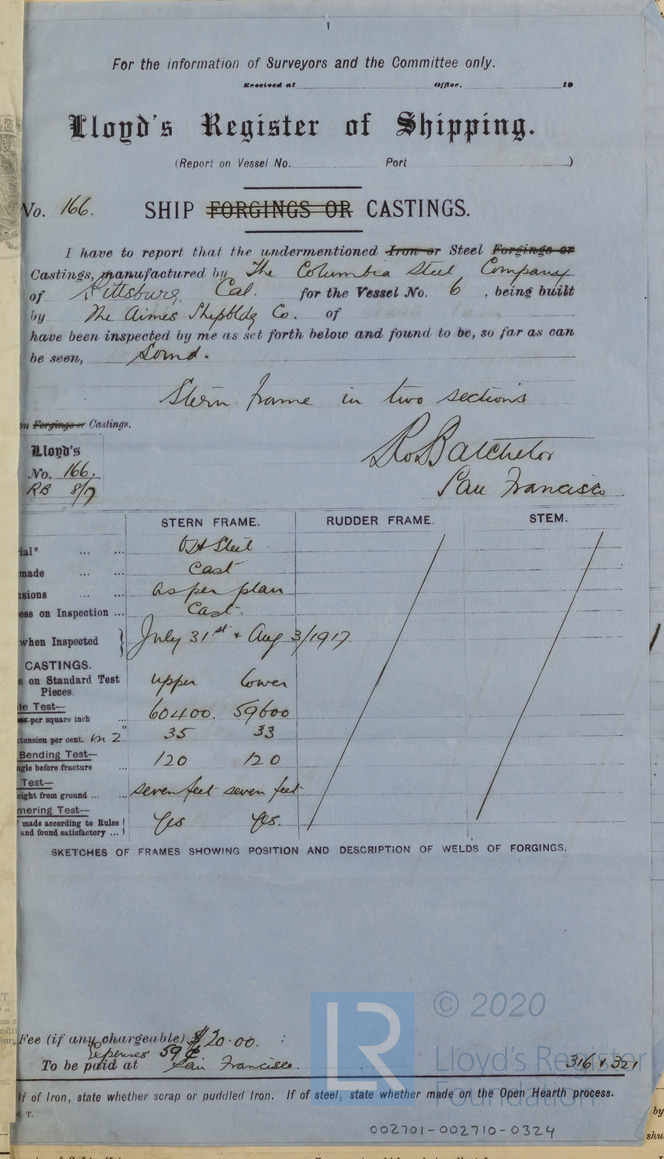 For the information of Surveyors and the Committee only.
Received at Office, 19
Lloyd's Register of Shipping.
(Report on Vessel No. Port )
No. 166. SHIP FORGINGS OR CASTINGS.
I have to report that the undermentioned Iron or Steel Forgings or
Castings, manufactured by The Columbia Steel Company
of Pittsburg, Cal. for the Vessel No. 6 , being built
by The Aimes Shipbldg Co. of
have been inspected by me as set forth below and found to be, so far as can
be seen, Sound.
Stern frame in two sections
on Forgings or Castings.
Lloyd's
No. 166.
RB 8/7
Ro Batchelor
San Francisco
STERN FRAME. RUDDER FRAME. STEM.
ial* ... ... OH Steel
made ... ... Cast
sions ... ... as per plan
ess on Inspection ... Cast.
when Inspected } July 31st + Aug 3/1917.
CASTINGS.
s on Standard Test
Pieces. upper lower
le Test—
per square inch ... 60400. 59600
tension per cent. in 2" 35 33
Bending Test—
gle before fracture ... 120 120
Test—
eight from ground ... ... seven feet seven feet
mering Test—
made according to Rules
and found satisfactory ... Yes Yes.
SKETCHES OF FRAMES SHOWING POSITION AND DESCRIPTION OF WELDS OF FORGINGS.
Fee (if any chargeable) $20.00. :
Expenses 59¢
To be paid at San Francisco.
316 & 321
If of Iron, state whether scrap or puddled Iron. If of steel, state whether made on the Open Hearth process.
T.
002701-002710-0324
LR
© 2020
Lloyd's Register
Foundation